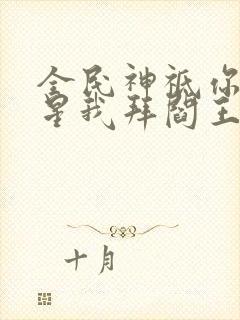 全民神祇你
星我拜阎王
十月